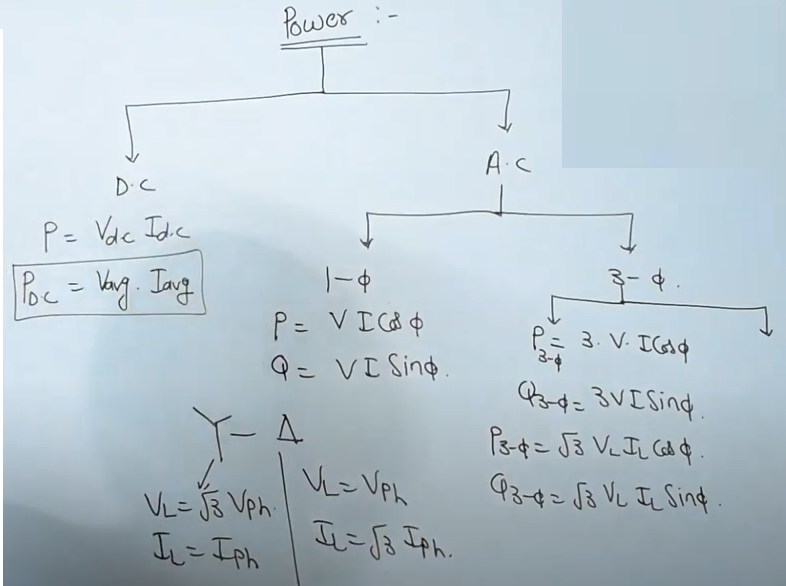 Power :-
D.C
P = Vdc Id.c
PDC = Vavg. Iavg
A.C
1-ϕ
P = V I Cosϕ
Q = V I Sinϕ.
3-ϕ.
P3-ϕ = 3. V. I Cosϕ
Q3-ϕ = 3 V I Sinϕ.
P3-ϕ = √3 VL IL Cosϕ.
Q3-ϕ = √3 VL IL Sinϕ.
Y - Δ
VL = √3 Vph.
IL = Iph
VL = Vph
IL = √3 Iph.